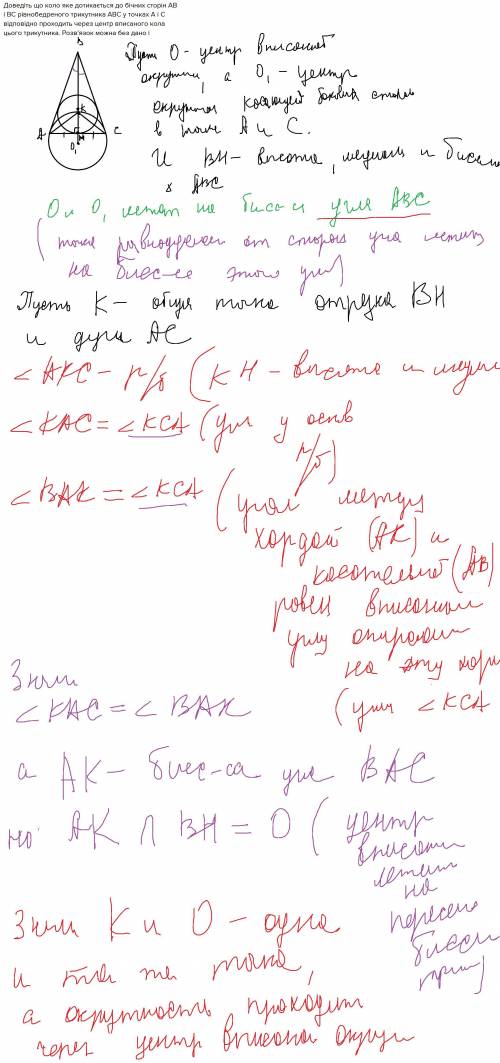 Доведіть що коло яке дотикається до бічних сторін АВ
і ВС рівнобедреного трикутника АВС у точках А і С
відповідно проходить через центр вписаного кола
цього трикутника. Розв'язок можна без дано і
B
K
A C
H
O₁
Пусть O - центр вписаной
окружн, а O₁ - центр
окружности касающей боковых сторон
в точк A и C.
И BH - высота, медиана и
ABC
O и O₁ лежат на биссек угла ABC
(точка равноудален от сторон угла лежит
на бисс-се этого угл)
Пусть K - общая точка отрезка BH
и дуги AC
∠AKC - р/б (KH - высота и меди
∠KAC = ∠KCA (угл у осн
р/б)
∠BAK = ∠KCA (угол между
хордой (AK) и
касательной (AB)
равен вписаном
углу опирающ
на эту хорд
(угл ∠KCA
Значит
∠KAC = ∠BAK
а AK - бисс-са угла BAC
но AK ∩ BH = O (центр
вписан
лежит
на
пересеч
бисс
Значит K и O - одна
и та же точка,
а окружность проходит
через центр вписаной окруж